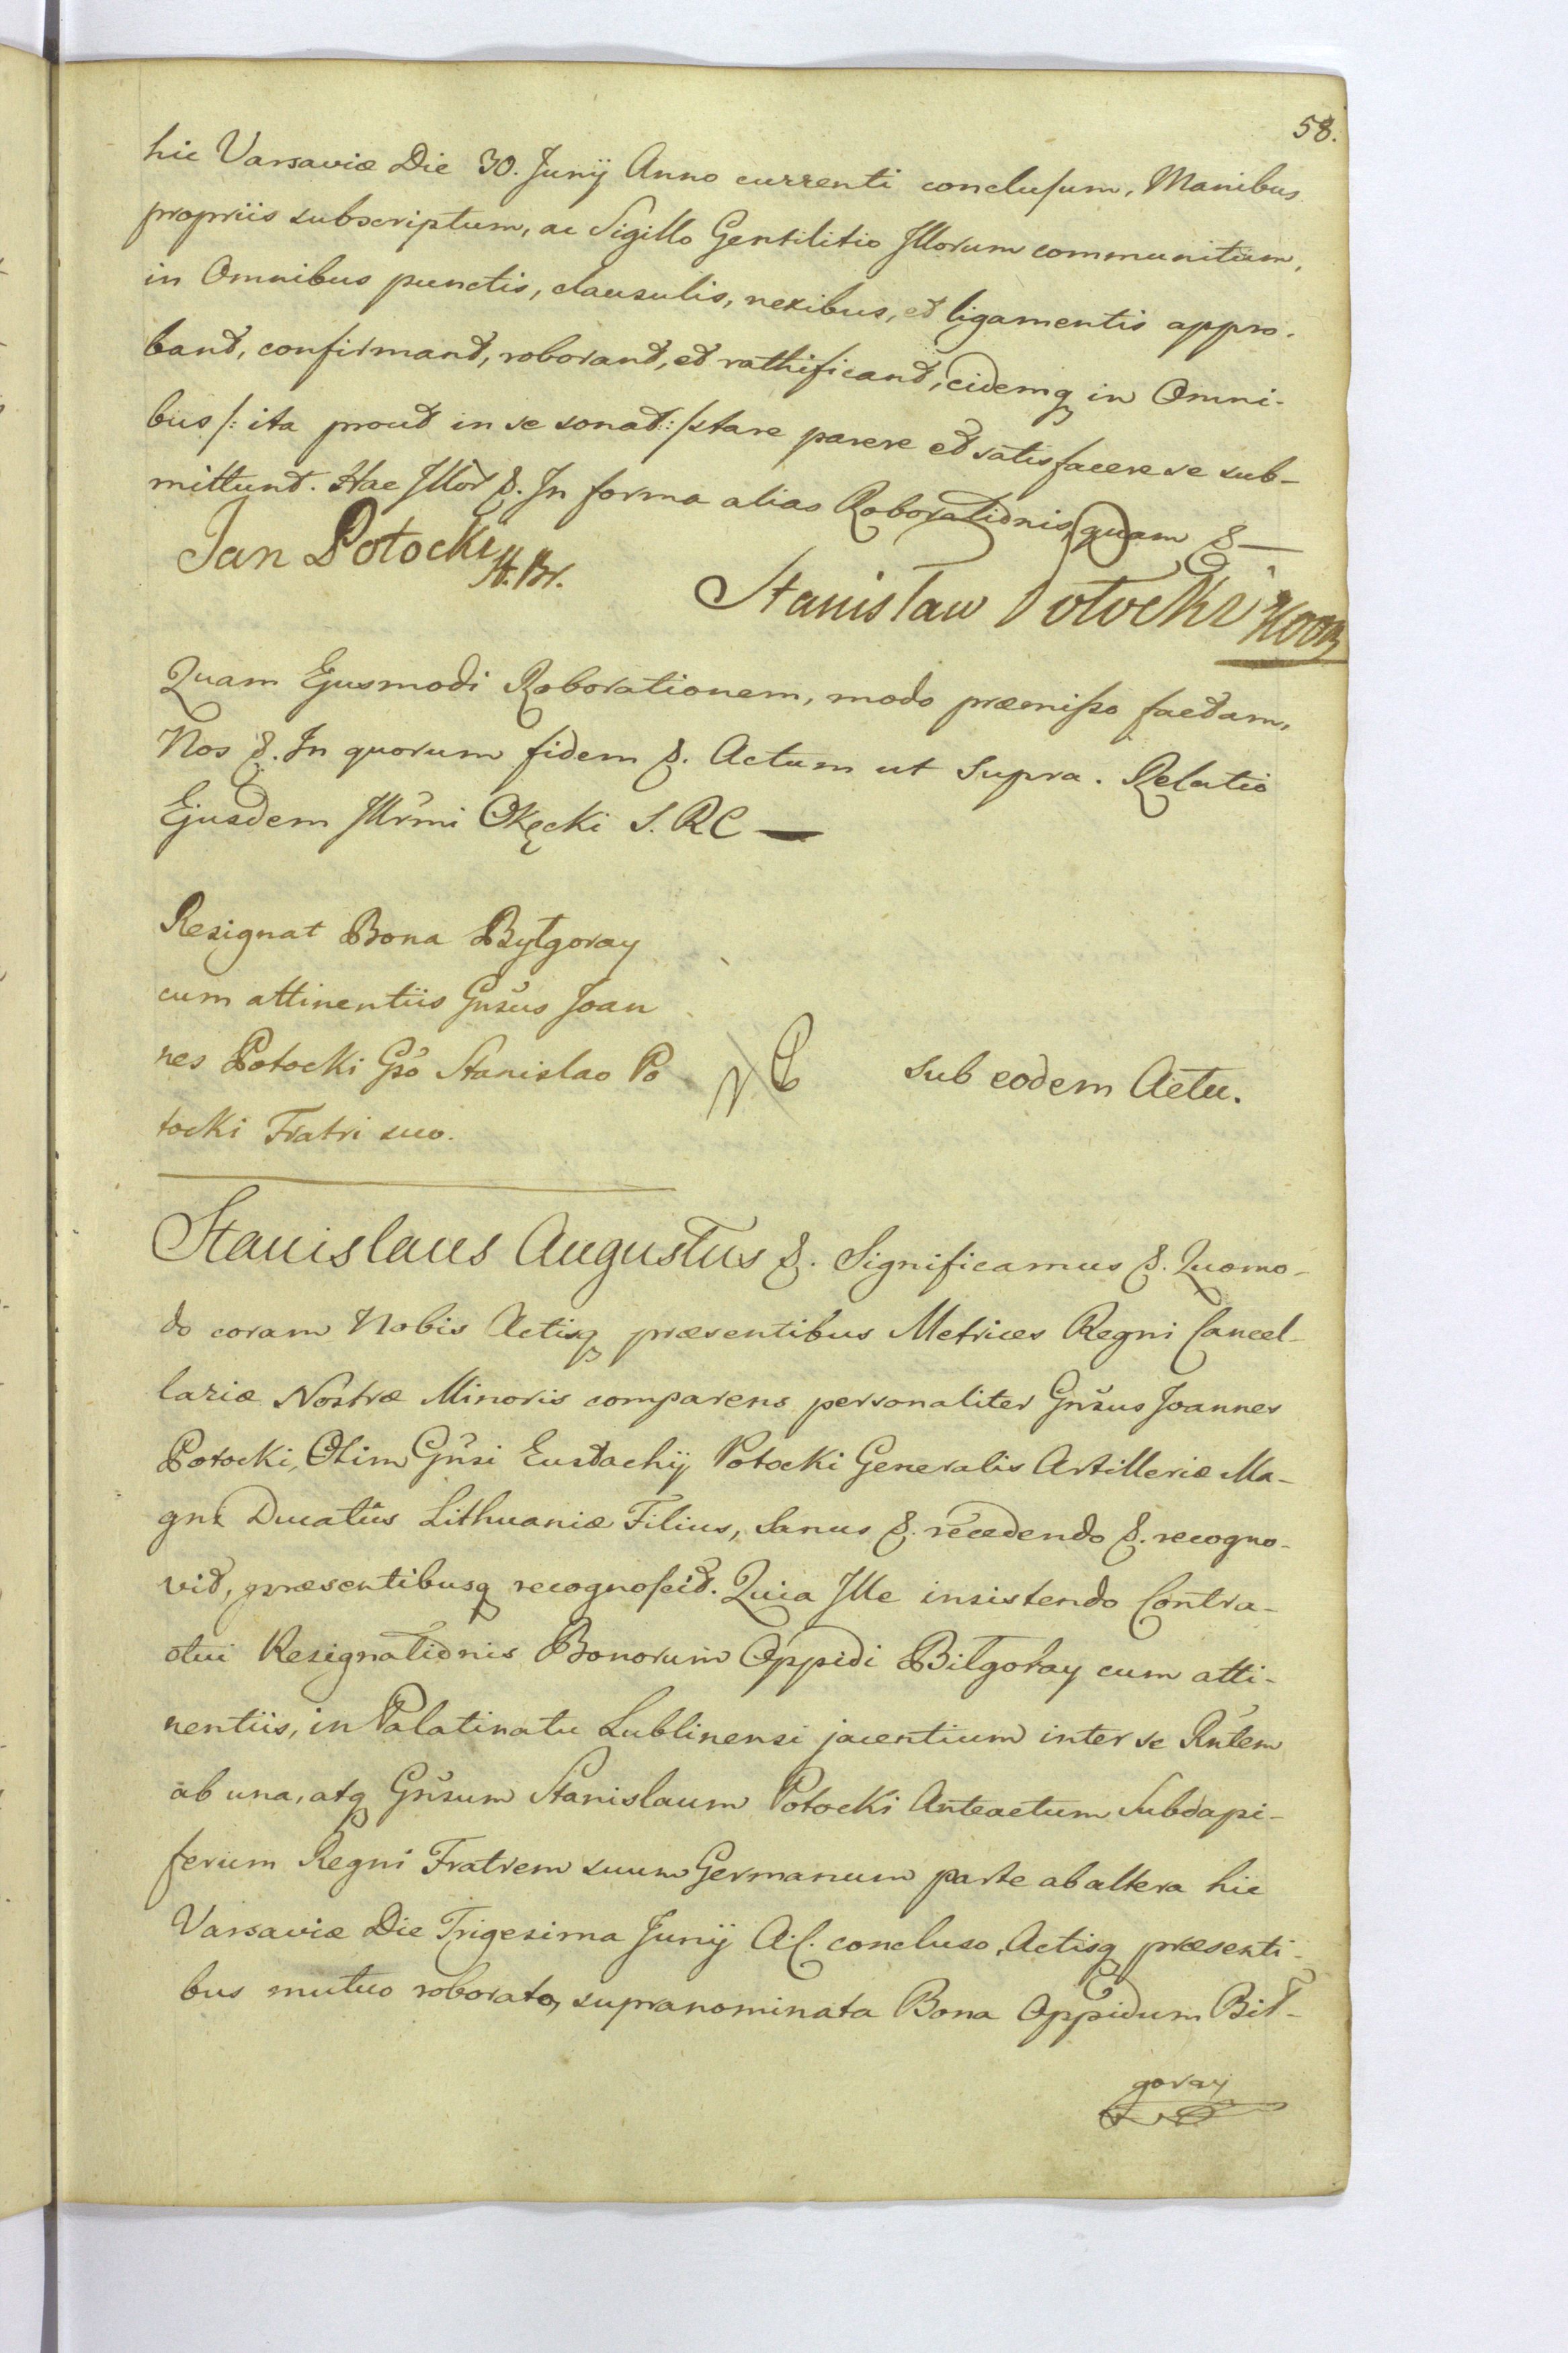 58.
hic Varsaviæ Die 30. Junij Anno currenti conclusum, Manibus
propriis subscriptum, ac Sigillo Gentilitio Illorum communitum,
in Omnibus punctis, clausulis, nexibus, et ligamentis appro-
bant, confirmant, roborant, et rathificant, eidemq in Omni-
bus /: ita prout in se sonat :/ stare parere et satisfacere se sub-
mittunt. Hac Illor &. In forma alias Roborationis, quam &
Jan Potocki
Stanisław Potocki
Quam Ejusmodi Roborationem, modo præmisso factam,
Nos &. In quorum fidem &. Actum ut supra. Relatio
Ejusdem Illrmi Okęcki S. R C
Resignat Bona Byłgoray
cum attinentiis Gnsus Joan
nes Potocki Gso Stanislao Po
tocki Fratri suo.
sub eodem Actu.
Stanislaus Augustus &. Significamus &. Quomo-
do coram Nobis Actisq præsentibus Metrices Regni Cancel-
lariæ Nostræ Minoris comparens personaliter Gnsus Joannes
Potocki, Olim Gnsi Eustachij Potocki Generalis Artilleriæ Ma-
gni Ducatûs Lithuaniæ Filius, Sanus &. recedendo &. recogno-
vit, præsentibusq recognoscit. Quia Ille insistendo Contra-
ctui Resignationis Bonorum Oppidi Biłgoray cum atti-
nentiis, in Palatinatu Lublinensi jacentium inter se Rntem
ab una, atq Gnsum Stanislaum Potocki Anteactum Subdapi-
ferum Regni Fratrem suum Germanum parte ab altera hic
Varsaviæ Die Trigesima Junij A.C. concluso, Actisq præsenti-
bus mutuo roborato, supranominata Bona Oppidum Bił-
goray